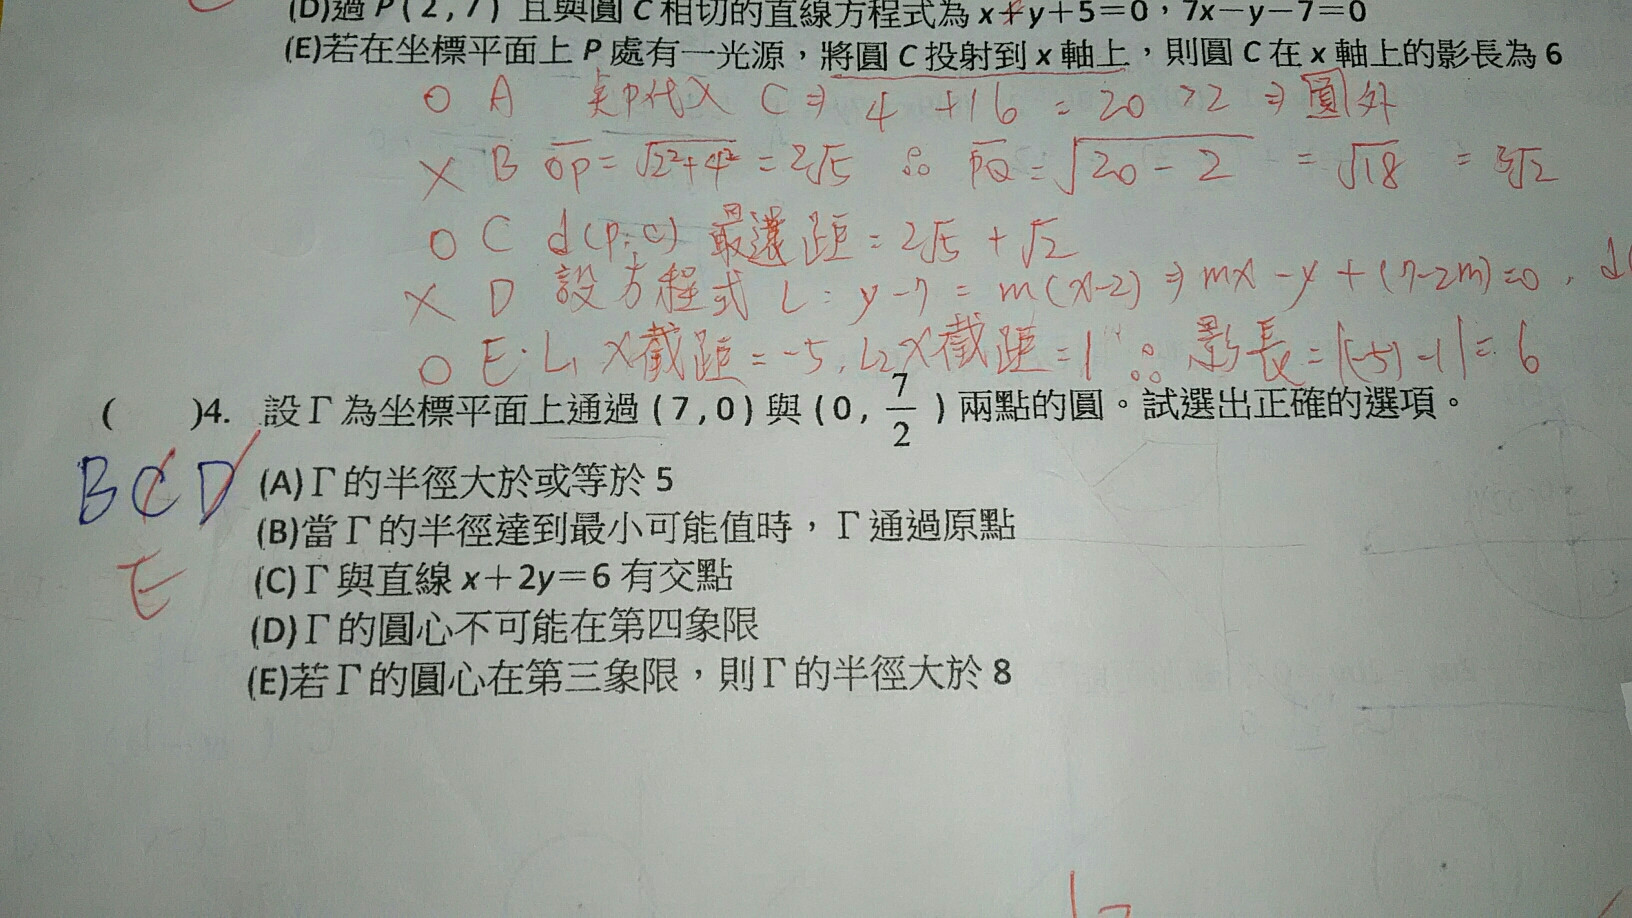 (D)過 P(2,7) 且與圓 C 相切的直線方程式為 x+y+5=0，7x-y-7=0
(E)若在坐標平面上 P 處有一光源，將圓 C 投射到 x 軸上，則圓 C 在 x 軸上的影長為 6
O A 點P代入 C ⇒ 4 +16 = 20 >2 ⇒ 圓外
X B OP = √2²+4² = 2√5 ∴ PQ = √20-2 = √18 = 3√2
O C d(P,C) 最遠距 = 2√5 + √2
X D 設方程式 L: y-7 = m(x-2) ⇒ mx-y+(7-2m)=0, d(
O E. L₁ X截距 = -5, L₂ X截距 = 1 ∴ 影長 = |(-5)-1| = 6
( )4. 設 Γ 為坐標平面上通過 (7,0) 與 (0, 7/2) 兩點的圓。試選出正確的選項。
BCD
E
(A) Γ 的半徑大於或等於 5
(B)當 Γ 的半徑達到最小可能值時，Γ 通過原點
(C) Γ 與直線 x+2y=6 有交點
(D) Γ 的圓心不可能在第四象限
(E)若 Γ 的圓心在第三象限，則 Γ 的半徑大於 8